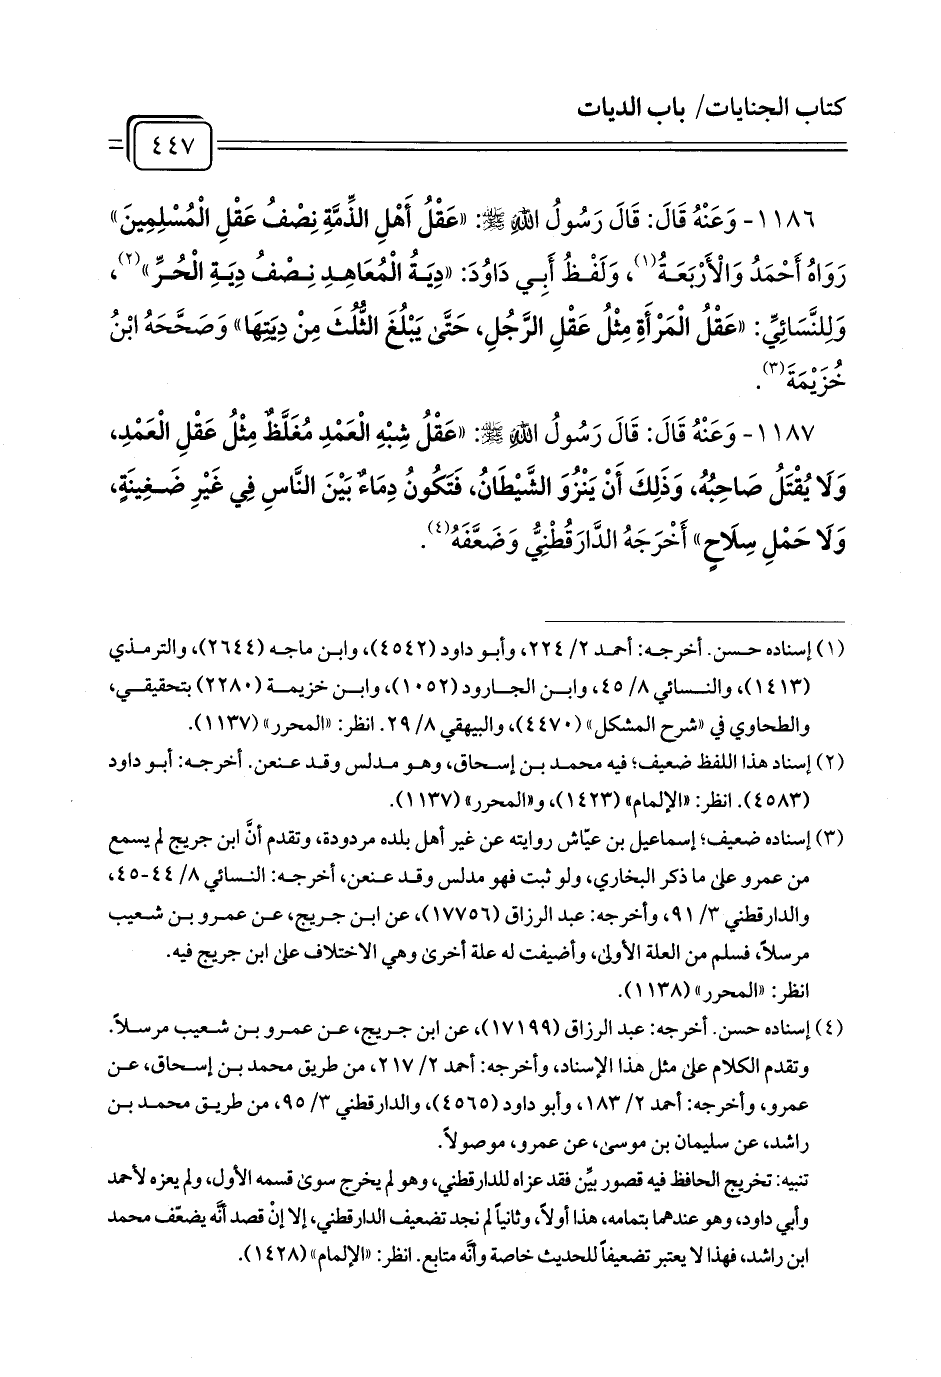 كتاب الجنايات/ باب الديات
٤٤٧
١١٨٦- وَعَنْهُ قَالَ: قَالَ رَسُولُ اللهِ ﷺ: «عَقْلُ أَهْلِ الذِّمَّةِ نِصْفُ عَقْلِ الْمُسْلِمِينَ»
رَوَاهُ أَحْمَدُ وَالْأَرْبَعَةُ(١)، وَلَفْظُ أَبِي دَاوُدَ: «دِيَةُ الْمُعَاهِدِ نِصْفُ دِيَةِ الْحُرِّ»(٢)،
وَلِلنَّسَائِيِّ: «عَقْلُ الْمَرْأَةِ مِثْلُ عَقْلِ الرَّجُلِ، حَتَّى يَبْلُغَ الثُّلُثَ مِنْ دِيَتِهَا» وَصَحَّحَهُ ابْنُ
خُزَيْمَةَ(٣).
١١٨٧- وَعَنْهُ قَالَ: قَالَ رَسُولُ اللهِ ﷺ: «عَقْلُ شِبْهِ الْعَمْدِ مُغَلَّظٌ مِثْلُ عَقْلِ الْعَمْدِ،
وَلَا يُقْتَلُ صَاحِبُهُ، وَذَلِكَ أَنْ يَنْزُوَ الشَّيْطَانُ، فَتَكُونُ دِمَاءٌ بَيْنَ النَّاسِ فِي غَيْرِ ضَغِينَةٍ،
وَلَا حَمْلِ سِلَاحٍ» أَخْرَجَهُ الدَّارَقُطْنِيُّ وَضَعَّفَهُ(٤).
(١) إسناده حسن. أخرجه: أحمد ٢/ ٢٢٤، وأبو داود (٤٥٤٢)، وابن ماجه (٢٦٤٤)، والترمذي
(١٤١٣)، والنسائي ٨/ ٤٥، وابن الجارود (١٠٥٢)، وابن خزيمة (٢٢٨٠) بتحقيقي،
والطحاوي في «شرح المشكل» (٤٤٧٠)، والبيهقي ٨/ ٢٩. انظر: «المحرر» (١١٣٧).
(٢) إسناد هذا اللفظ ضعيف؛ فيه محمد بن إسحاق، وهو مدلس وقد عنعن. أخرجه: أبو داود
(٤٥٨٣). انظر: «الإلمام» (١٤٢٣)، و«المحرر» (١١٣٧).
(٣) إسناده ضعيف؛ إسماعيل بن عيّاش روايته عن غير أهل بلده مردودة، وتقدم أنَّ ابن جريج لم يسمع
من عمرو على ما ذكر البخاري، ولو ثبت فهو مدلس وقد عنعن، أخرجه: النسائي ٨/ ٤٤-٤٥،
والدارقطني ٣/ ٩١، وأخرجه: عبد الرزاق (١٧٧٥٦)، عن ابن جريج، عن عمرو بن شعيب
مرسلاً، فسلم من العلة الأولى، وأضيفت له علة أخرى وهي الاختلاف على ابن جريج فيه.
انظر: «المحرر» (١١٣٨).
(٤) إسناده حسن. أخرجه: عبد الرزاق (١٧١٩٩)، عن ابن جريج، عن عمرو بن شعيب مرسلاً.
وتقدم الكلام على مثل هذا الإسناد، وأخرجه: أحمد ٢/ ٢١٧، من طريق محمد بن إسحاق، عن
عمرو، وأخرجه: أحمد ٢/ ١٨٣، وأبو داود (٤٥٦٥)، والدارقطني ٣/ ٩٥، من طريق محمد بن
راشد، عن سليمان بن موسى، عن عمرو، موصولاً.
تنبيه: تخريج الحافظ فيه قصور بيِّن فقد عزاه للدارقطني، وهو لم يخرج سوى قسمه الأول، ولم يعزه لأحمد
وأبي داود، وهو عندهما بتمامه، هذا أولاً، وثانياً لم نجد تضعيف الدارقطني، إلا إنْ قصد أنَّه يضعّف محمد
ابن راشد، فهذا لا يعتبر تضعيفاً للحديث خاصة وأنَّه متابع. انظر: «الإلمام» (١٤٢٨).